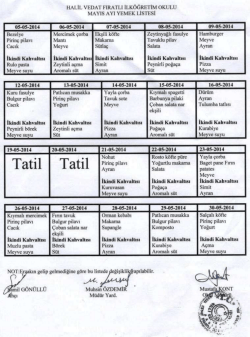 HALİL VEDAT FIRATLI İLKÖĞRETİM OKULU
MAYIS AYI YEMEK LİSTESİ
05-05-2014 06-05-2014 07-05-2014 08-05-2014 09-05-2014
Fasulye
Pirinç pilavı
Cacık
İkindi Kahvaltısı
Rulo pasta
Meyve suyu
Mercimek çorba
Mantı
Meyve
İkindi Kahvaltısı
Zeytinli açma
Süt
Ekşili köfte
Makarna
Sütlaç
İkindi Kahvaltısı
Pizza
Ayran
Zeytinyağlı fasulye
Tavuklu pilav
Salata
İkindi Kahvaltısı
Peynirli poğaça
Süt
Hamburger
Meyve
Ayran
İkindi Kahvaltısı
Açma
Meyve suyu
12-05-2014 13-05-2014 14-05-2014 15-05-2014 16-05-2014
Kuru fasulye
Bulgur pilavı
Cacık
İkindi Kahvaltısı
Meyve suyu
Patlıcan musakka
Pirinç pilavı
Yoğurt
İkindi Kahvaltısı
Zeytinli açma
Aromalı süt
Yayla çorba
Tavuk sote
Meyve
İkindi Kahvaltısı
Pizza
Ayran
Kıymalı ıspanak
Çoban salata
İkindi Kahvaltısı
Poğaça
Süt
Dürüm
Ayran
Tulumba tatlısı
İkindi Kahvaltısı
Kurabiye
Meyve suyu
19-05-2014 20-05-2014 21-05-2014 22-05-2014 23-05-2014
Tatil
Tatil
Nohut
Pirinç pilavı
Ayran
İkindi Kahvaltısı
Meyve suyu
Rosto köfte püre
Yoğurtlu makarna
Salata
İkindi Kahvaltısı
Poğaça
Aromalı süt
Yayla çorba
Meyve
İkindi Kahvaltısı
Açma
Meyve suyu
26-05-2014 27-05-2014 28-05-2014 29-05-2014 30-05-2014
Kıymalı mercimek
Pirinç pilavı
Cacık
İkindi Kahvaltısı
Meyve suyu
Fırın tavuk
Bulgur pilavı
Çoban salata
İkindi Kahvaltısı
Börek
Aromalı süt
Orman kebabı
Makarna
Supangle
İkindi Kahvaltısı
Pizza
Ayran
Patlıcan musakka
Bulgur pilavı
Komposto
İkindi Kahvaltısı
Kurabiye
Süt
Salçalı köfte
Pirinç pilavı
Yoğurt
İkindi Kahvaltısı
Açma
Meyve suyu
GÖNÜLLÜ
Muhsin ÖZDEMİR
Müdür Yard.
Mustafa KONT